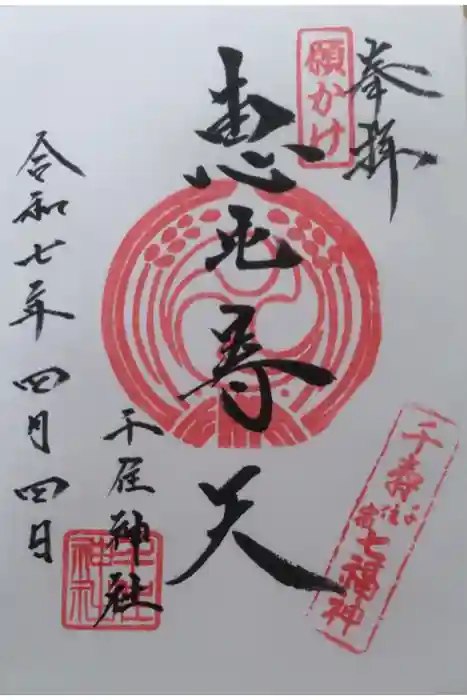 奉拝
願かけ
恵比寿天
千住神社
令和七年 四月 四日
千寿七福神
千住
神社